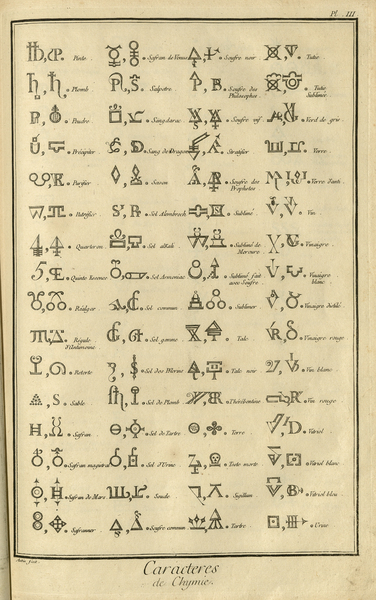 Pl. III
Plomb
Poudre
Précipiter
Purifier
Putrifier
Quarteron
Quinte Essence
Réalgar
Régule d'Antimoine
Retorte
Sable
Safran
Safran magistral
Safran de Mars
Safranner
Safran de Venus
Salpetre
Sang de Dragon
Savon
Sel Alembroch
Sel alkali
Sel Armoniac
Sel commun
Sel gemme
Sel de Plomb
Sel de Tartre
Sel d'Urine
Soude
Soufre commun
Soufre noir
Soufre des Philosophes
Soufre vif
Stratifier
Soufre des Prophetes
Sublimé
Sublimé de Mercure
Sublimé fait avec Soufre
Sublimer
Talc
Talc noir
Thérébentine
Terre
Teste morte
Sigillum
Tartre
Tutie
Tutie Sublimée
Verd de gris
Verre
Vin
Vinaigre
Vinaigre blanc
Vinaigre distilé
Vinaigre rouge
Vin blanc
Vin rouge
Vitriol
Vitriol blanc
Vitriol bleu
Urine
Caracteres
de Chymie.